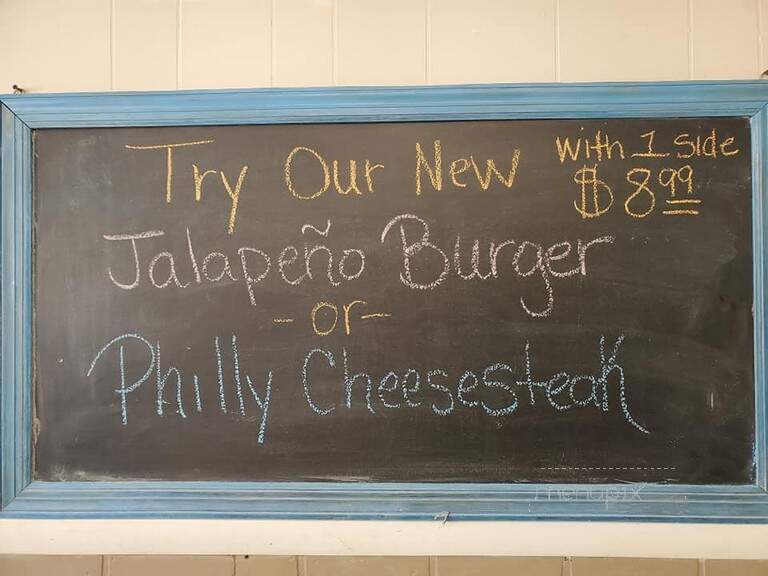 Try Our New
With 1 Side
$8.99
Jalapeño Burger
- or -
Philly Cheesesteak
menupix